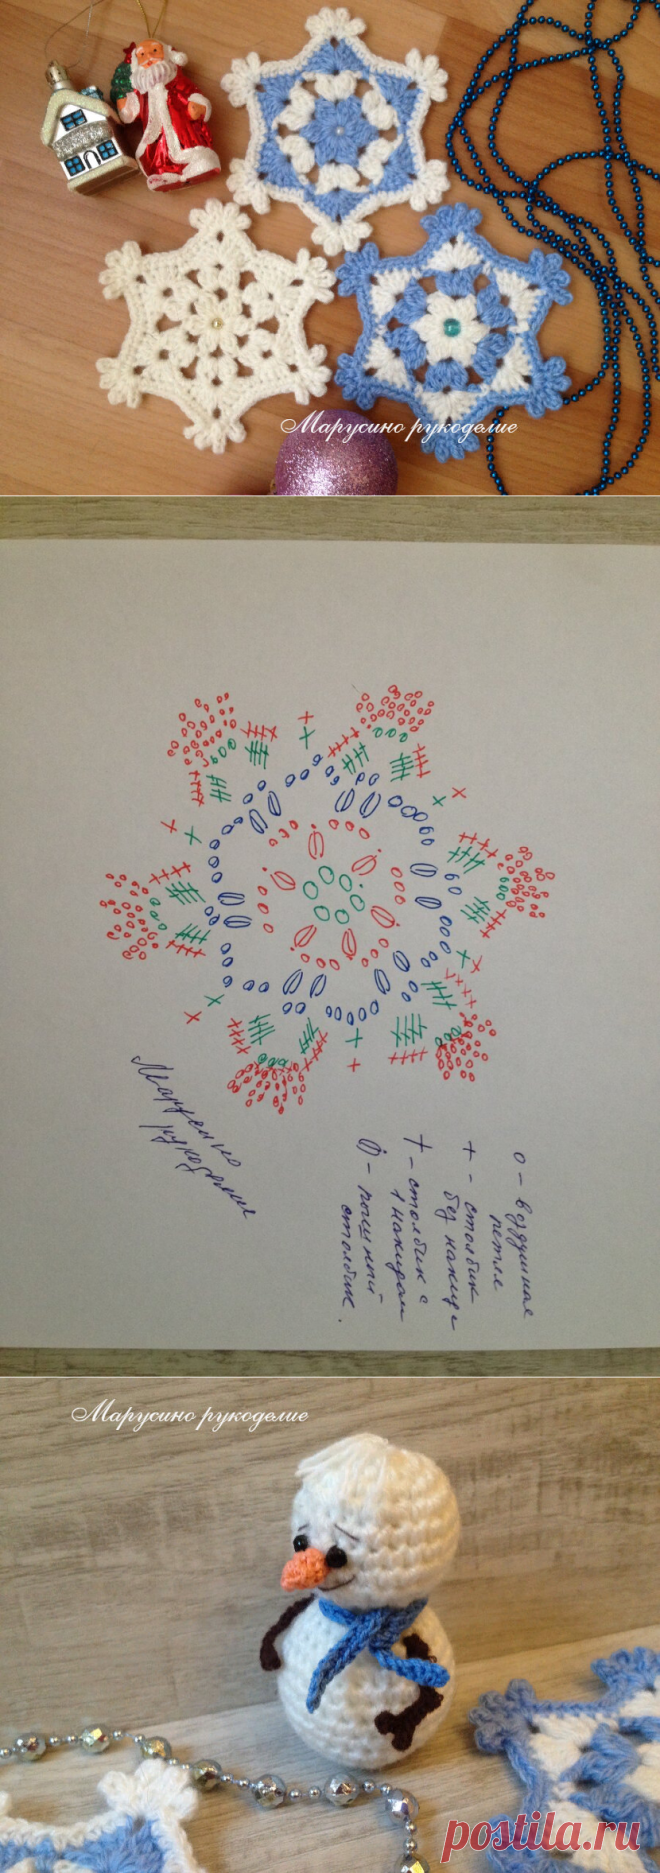 Марусино рукоделие
Марусино
рукоделие
о - воздушная
петля
+ - столбик
без накида
† - столбик с
1 накидом
- пышный
столбик.
Марусино рукоделие
postila.ru